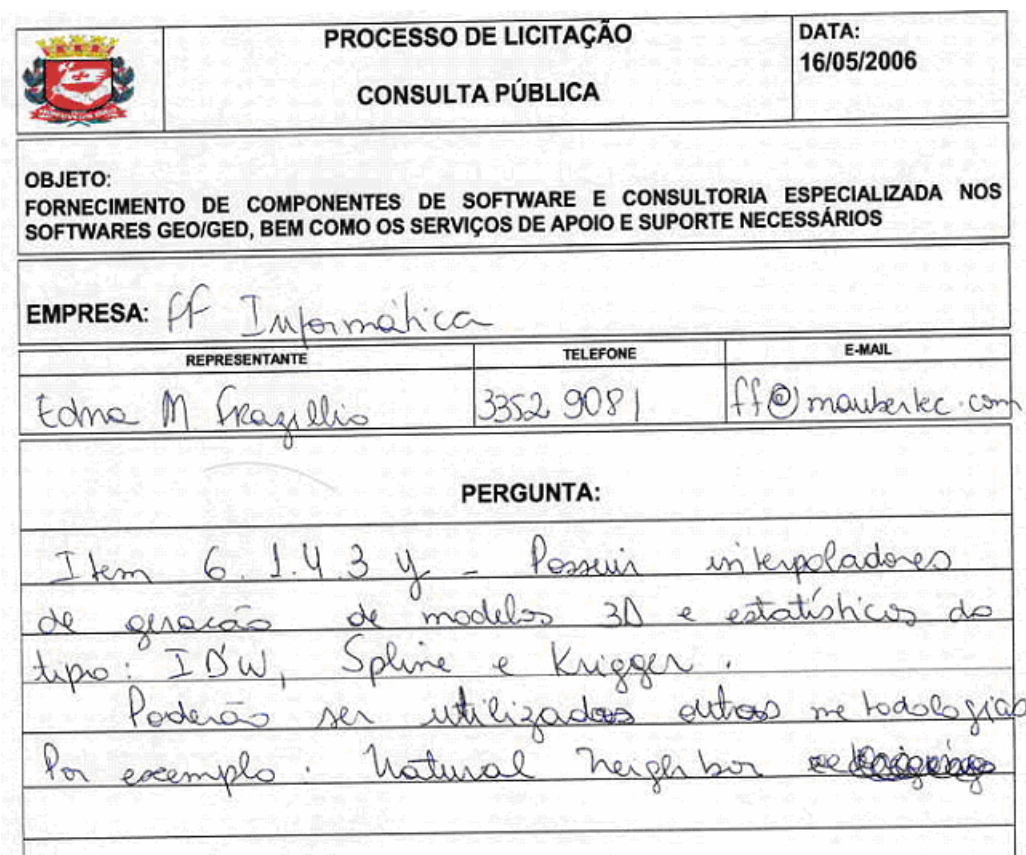 PROCESSO DE LICITAÇÃO
CONSULTA PÚBLICA
DATA:
16/05/2006
OBJETO:
FORNECIMENTO DE COMPONENTES DE SOFTWARE E CONSULTORIA ESPECIALIZADA NOS
SOFTWARES GEO/GED, BEM COMO OS SERVIÇOS DE APOIO E SUPORTE NECESSÁRIOS
EMPRESA: ff Informática
REPRESENTANTE
TELEFONE
E-MAIL
Edna M
3352 9081
ff@maubertec.com
PERGUNTA:
Item 6.1.4.3 y - Possuir interpoladores
de geração de modelos 3D e estatísticos do
tipo: IDW, Spline e Krigger.
Poderão ser utilizadas outras metodologias
Por exemplo: Natural Neighbor